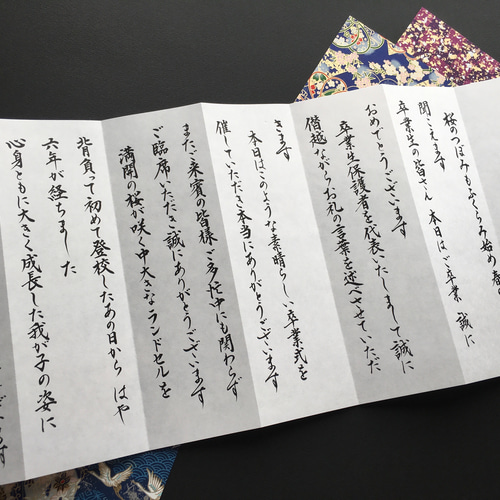 桜のつぼみもふくらみ始め春の
聞こえます
卒業生の皆さん 本日はご卒業 誠に
おめでとうございます
卒業生保護者を代表いたしまして誠に
僭越ながらお礼の言葉を述べさせていただ
きます
本日はこのような素晴らしい卒業式を
催していただき本当にありがとうございます
またご来賓の皆様ご多忙中にも関わらず
ご臨席いただき誠にありがとうございます
満開の桜が咲く中大きなランドセルを
背負って初めて登校したあの日から はや
六年が経ちました
心身ともに大きく成長した我が子の姿に